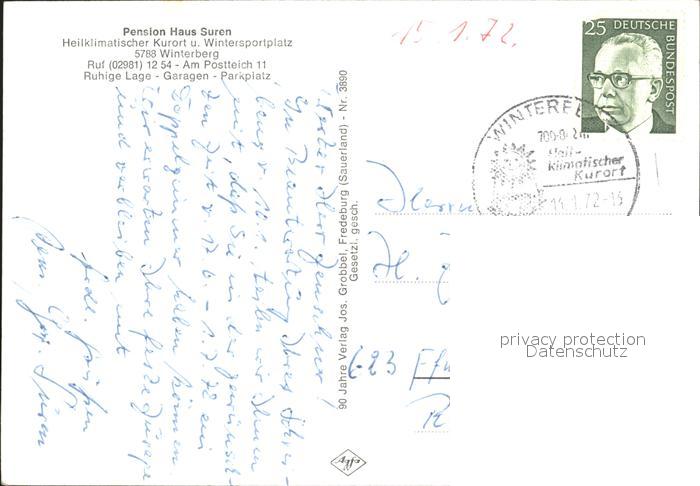 Pension Haus Suren
Heilklimatischer Kurort u. Wintersportplatz
5788 Winterberg
Ruf (02981) 12 54 - Am Postteich 11
Ruhige Lage - Garagen - Parkplatz
15.1.72.
25 DEUTSCHE
BUNDESPOST
WINTERBE
700-8 m
Heil-
klimatischer
Kurort
14.1.72-15
Herrn
H.
623 Ffm
90 Jahre Verlag Jos. Grobbel, Fredeburg (Sauerland) - Nr. 3890
Gesetzl. gesch.
Herr Jenschur!
In Beantwortung Ihres Schrei-
bens v. 10.1., teilen wir Ihnen
mit, daß Sie in der gewünsch-
ten Zeit v. 17.6. - 1.7.72 ein
Doppelzimmer haben können.
Wir erwarten Ihre feste Zusage
und verbleiben mit
freundl. Grüßen
Fam. Suren
privacy protection
Datenschutz